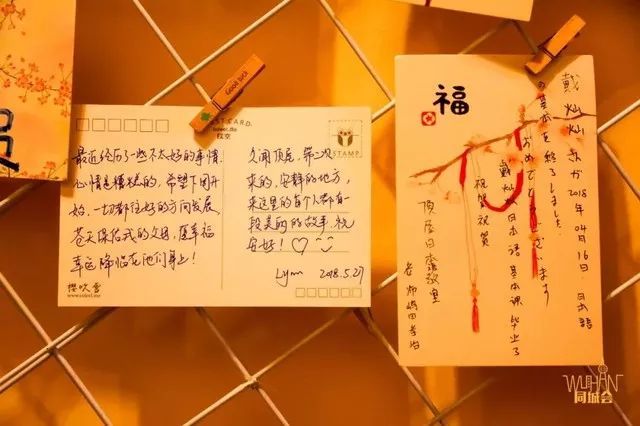 Good luck
POSTCARD.
STAMP
最近经历了一些不太好的事情,
心情是糟糕的,希望下周开
始,一切都往好的方向发展
苍天保佑我的父母,愿幸福
幸运降临在他们身上!
樱吹雪
久闻顶屋,第二次
来的,安静的地方,
来这里的每个人都有一
段美丽的故事,祝
安好!
Lynn 2018.5.27
福
戴灿灿さんが2018年04月16日、日本語
の基本を終了しました。
おめでとうございます
祝贺祝贺
戴灿灿日本語基本课毕业了
顶屋日本語教室
老师
WUHAN
同城会